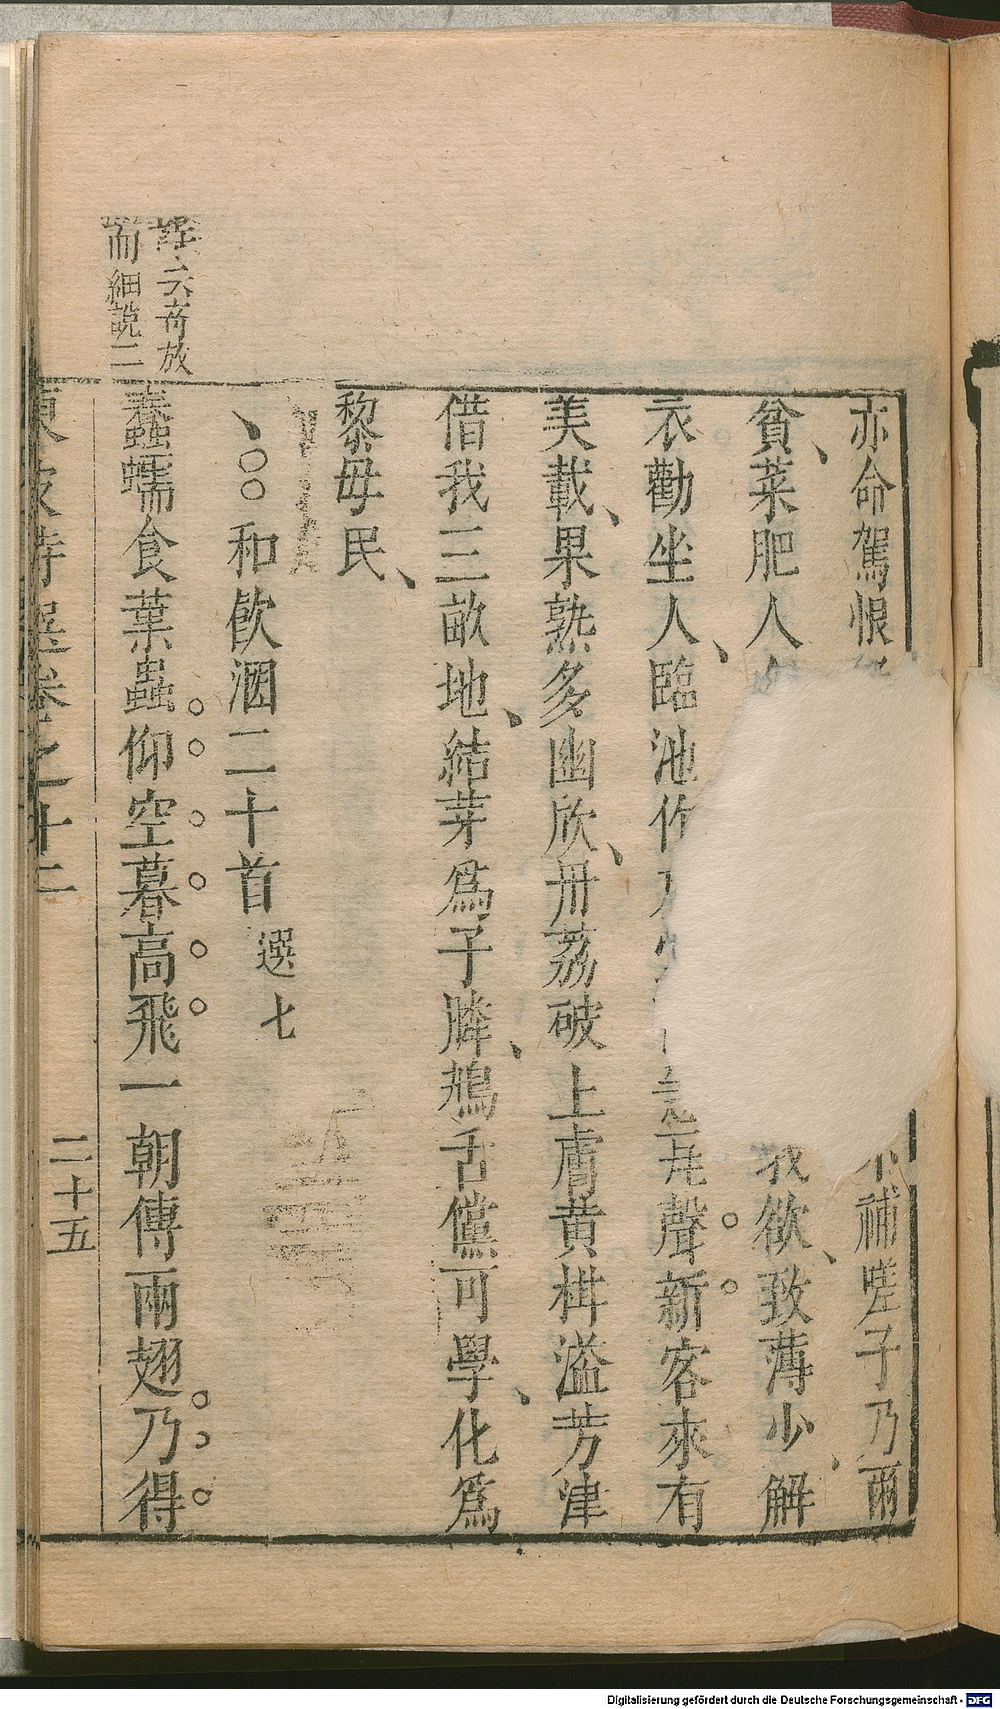 亦命駕恨
不補嗟子乃爾
貧菜肥人
我欲致薄少解
衣勸坐人臨池作
瓦聲新客來有
美載果熟多幽欣丹荔破上膚黄柑溢芳津
借我三畝地結茅爲子鄰鴂舌儻可學化爲
黎母民
和飲酒二十首選七
蠢蠕食葉蟲仰空暮高飛一朝傳兩翅乃得
譚云奇放
而細説二
東坡詩選卷之十二
二十五
Digitalisierung gefördert durch die Deutsche Forschungsgemeinschaft - DFG